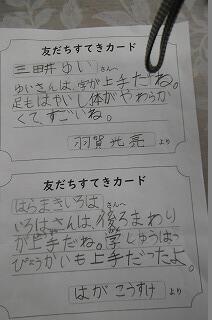 友だちすてきカード
三田井ゆいさんへ
ゆいさんは、字が上手だね。
足もはやいし体がやわらか
くて、すごいね。
羽賀光亮より
友だちすてきカード
はらまきいろはさんへ
いろはさんは、後ろまわり
が上手だね。学しゅうはっ
ぴょうかいも上手だったよ。
はがこうすけより